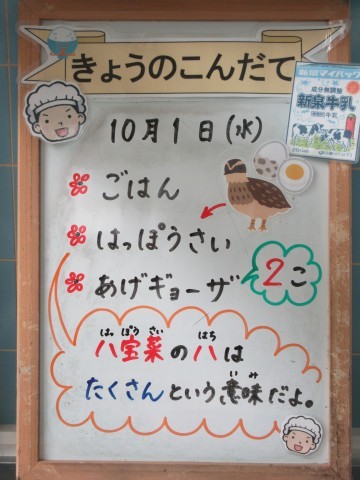 きょうのこんだて
10月1日(水)
ごはん
はっぽうさい
あげギョーザ 2こ
八宝菜の八は
たくさんという意味だよ。
はっ ぽう さい
はち
いみ
成分無調整
新泉牛乳